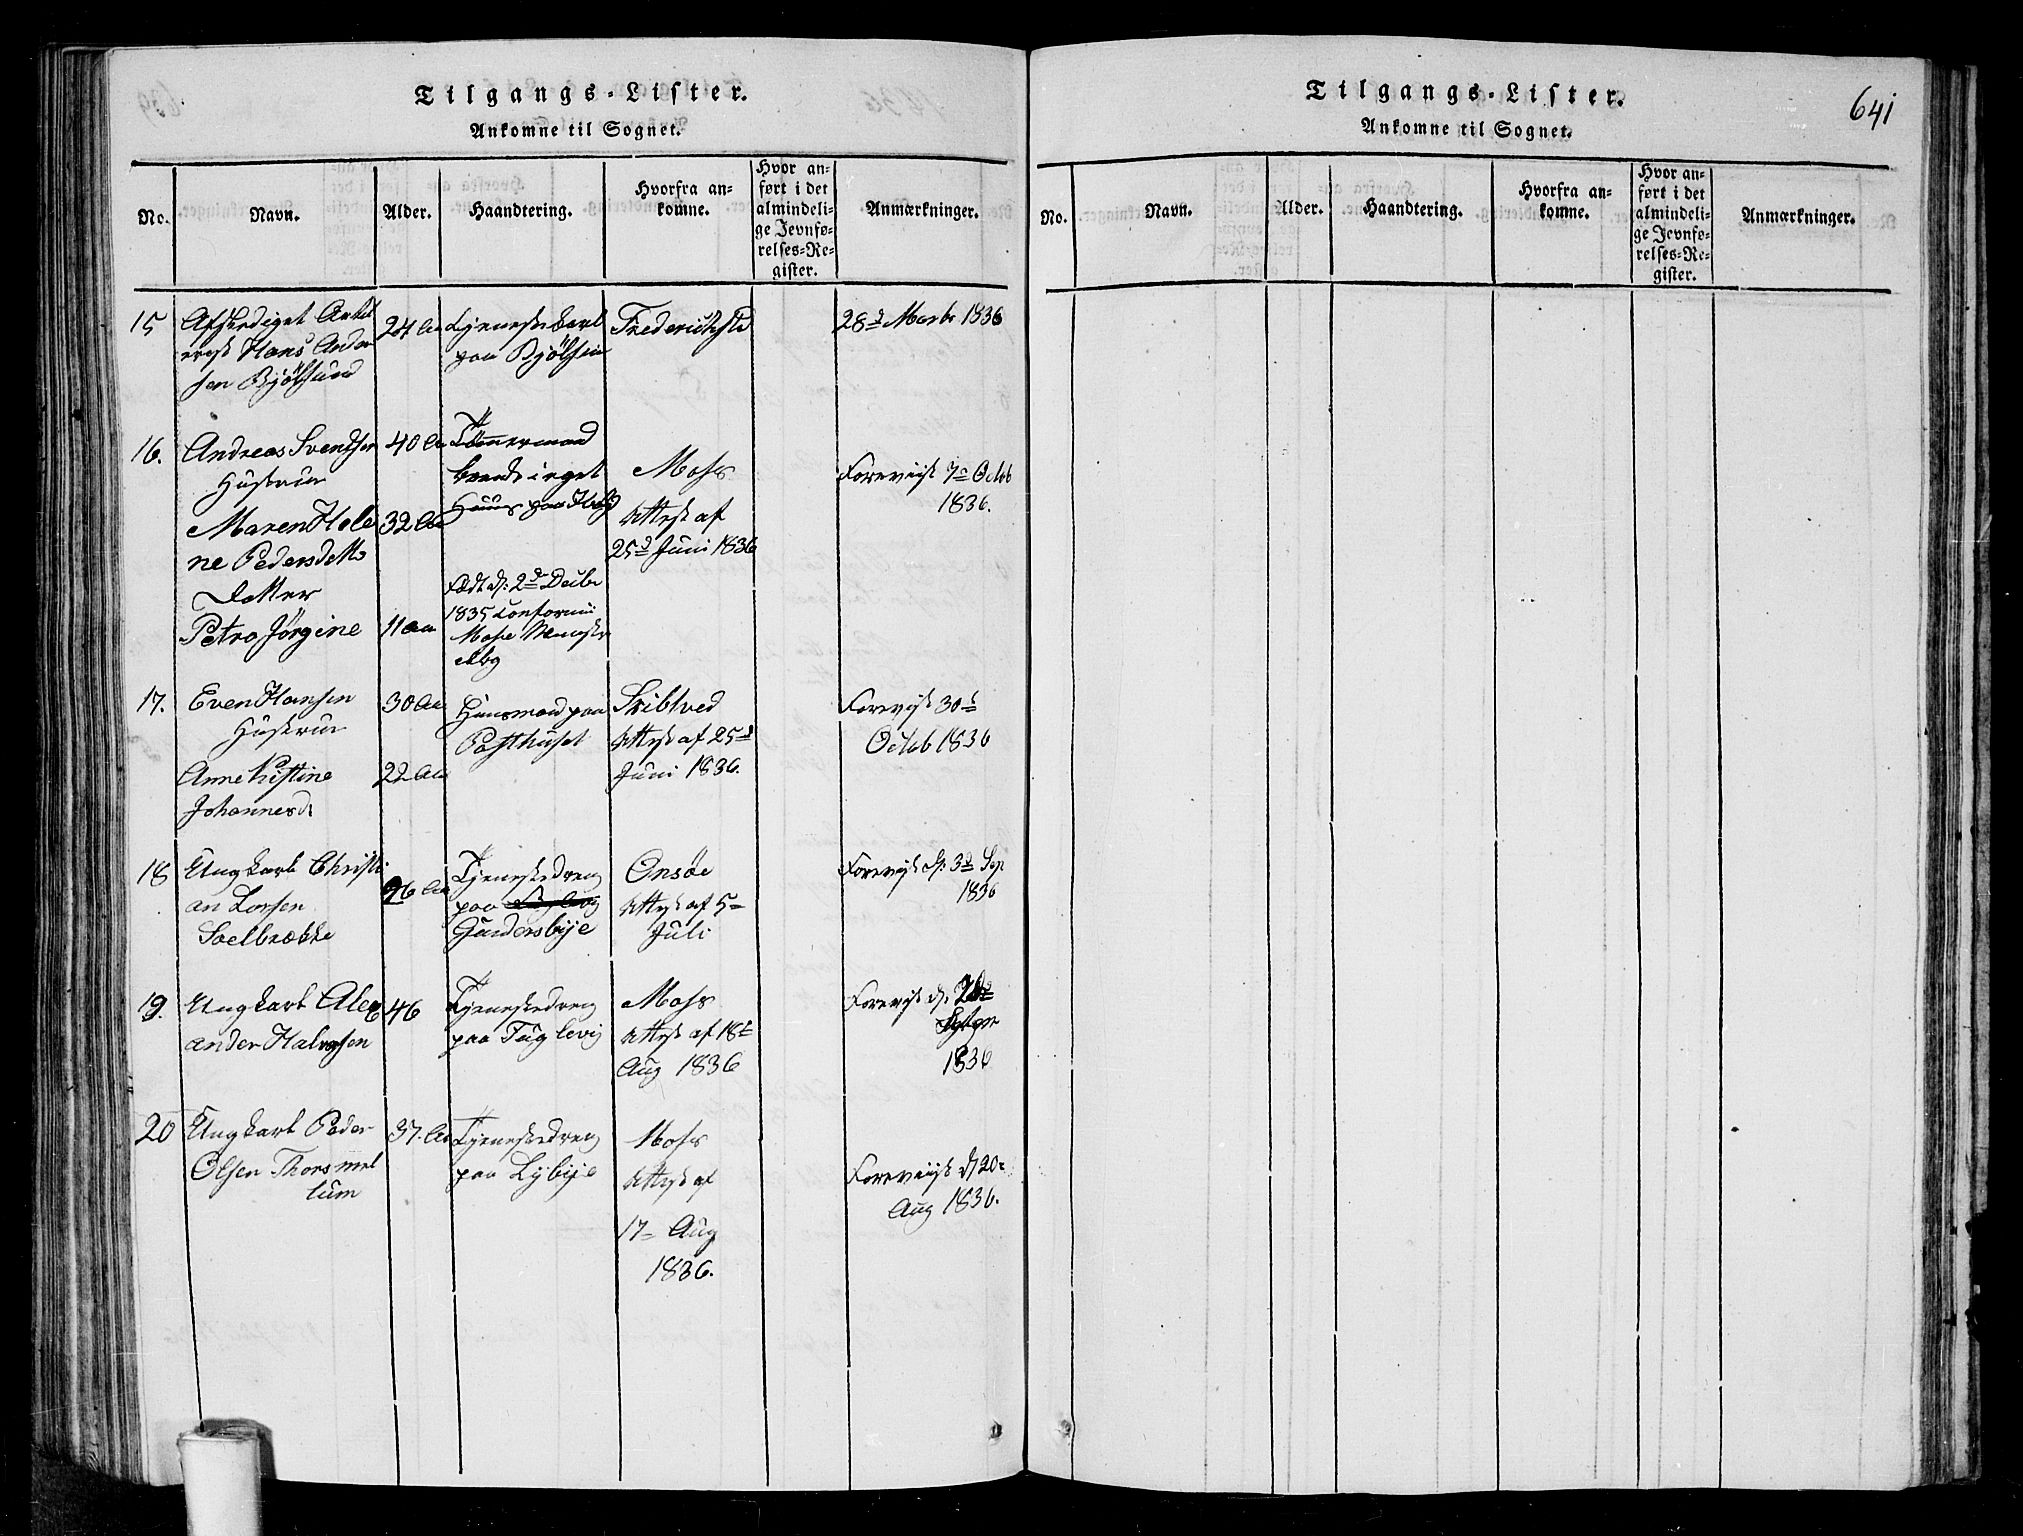 Tilgangs-Lister.
Ankomne til Sognet.
No.
Navn.
Alder.
Haandtering.
Hvorfra an-
komne.
Hvor an-
ført i det
almindeli-
ge Jevnfø-
relses-Re-
gister.
Anmærkninger.
15
Afskediget
Hans Ander
sen Bjölsund
24 Aar
Tjenestekarl
paa Bjölsen
Frederichsta
28d 1836
16.
Andreas Svendsen
Hustrue
Maren Hele
ne Pedersdatter
Datter
Petra Jörgine
40 Aar
32 Aar
11 Aar
Tömmermand
boende i eget
Huus paa
Födt d: 2d Decbr
1835
Moss
Attest af
25d Juni 1836
Foreviist 7de Octob
1836.
17.
Even Hansen
Hustrue
Anne Kistine
Johannesd
30 Aar
22 Aar
Huusmand paa
Posthuset
Skibtved
Attest af 25d
Juni 1836.
Foreviist 30d
Octob 1836
18
Ungkarl Christi
an Larsen
Soelbrække
26 Aar
Tjenestedreng
paa
Gundersbye
Onsöe
Attest af 5
Juli
Foreviist d: 3d Sep
1836
19.
Ungkarl Alex
ander Halvorsen
46
Tjenestedreng
paa Fuglevig
Moss
Attest af 18d
Aug 1836
Foreviist d.
1836
20
Ungkarl Peder
Olsen Thorsmel
lum
37. Aar
Tjenestedreng
paa Lybye
Moss
Attest af
17 Aug
1836.
Foreviist d 20
Aug 1836.
Tilgangs-Lister.
641
Ankomne til Sognet.
No.
Navn.
Alder.
Haandtering.
Hvorfra an-
komne.
Hvor an-
ført i det
almindeli-
ge Jevnfø-
relses-Re-
gister.
Anmærkninger.